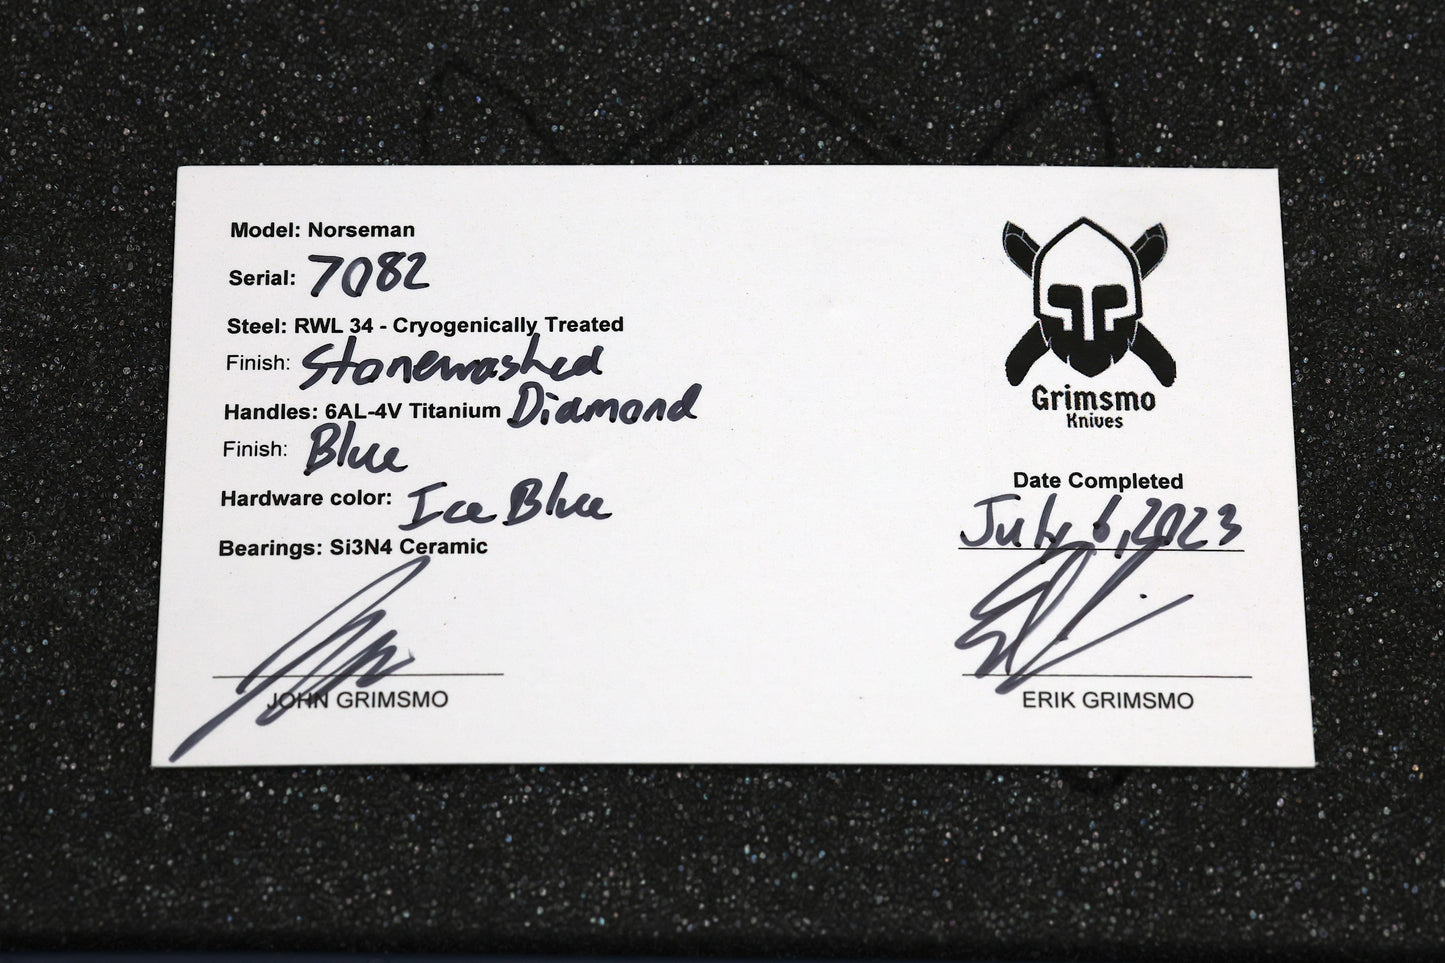 Model: Norseman
Serial: 7082
Steel: RWL 34 - Cryogenically Treated
Finish: Stonewashed
Handles: 6AL-4V Titanium Diamond
Finish: Blue
Hardware color: Ice Blue
Bearings: Si3N4 Ceramic
JOHN GRIMSMO
Grimsmo
Knives
Date Completed
July 6, 2023
ERIK GRIMSMO